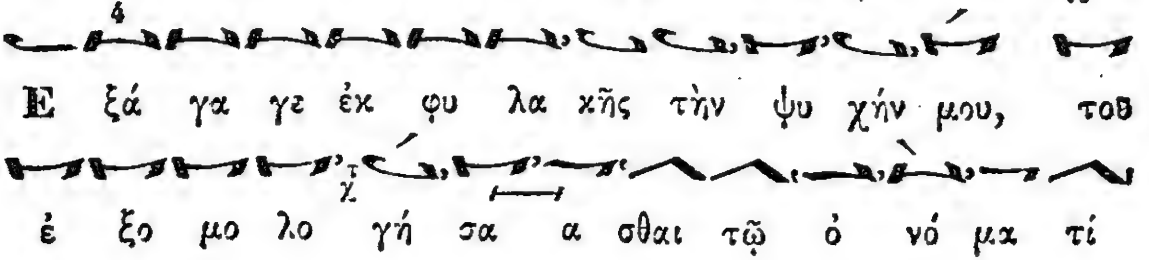 Ε ξά γα γε ἐκ φυ λα κῆς τὴν ψυ χήν μου, τοῦ
ἐ ξο μο λο γή σα α σθαι τῷ ὀ νό μα τί